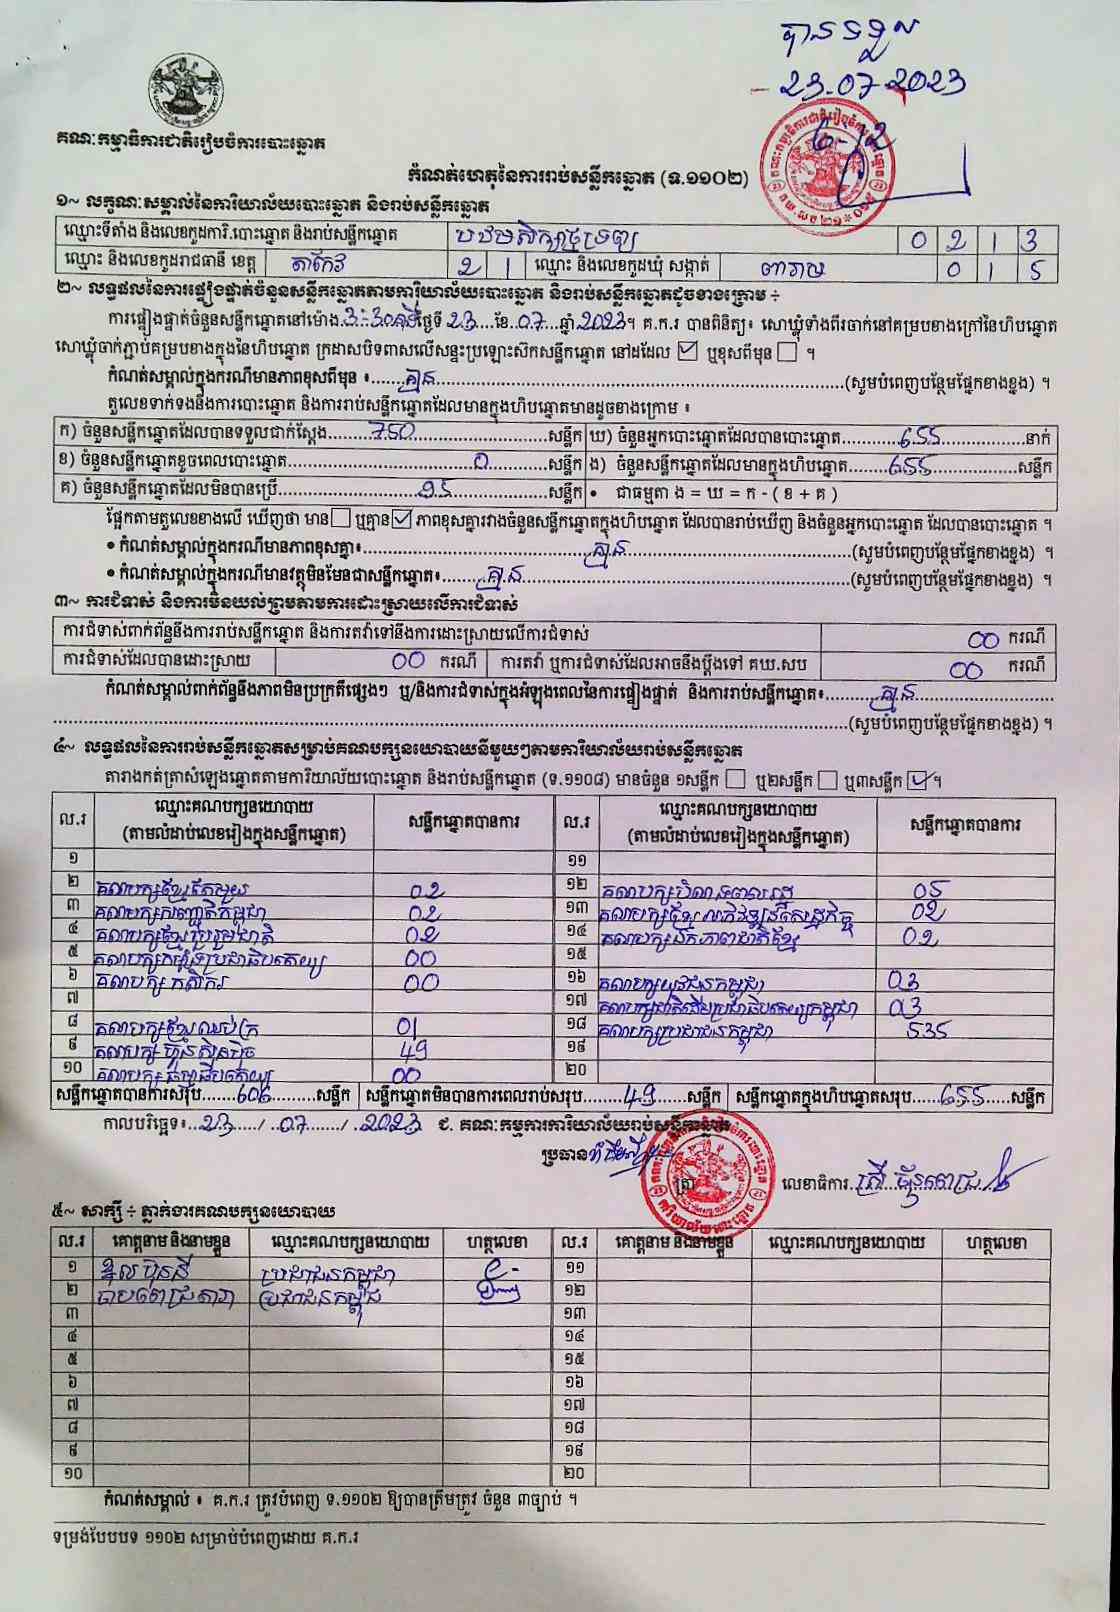 បានទទួល
- 23.07.2023
6-12
គណៈកម្មាធិការជាតិរៀបចំការបោះឆ្នោត
កំណត់ហេតុនៃការរាប់សន្លឹកឆ្នោត (ទ.១១០២)
១~ លក្ខណៈសម្គាល់នៃការិយាល័យបោះឆ្នោត និងរាប់សន្លឹកឆ្នោត
ឈ្មោះទីតាំង និងលេខកូដការិ.បោះឆ្នោត និងរាប់សន្លឹកឆ្នោត 0 2 1 3
ឈ្មោះ និងលេខកូដរាជធានី ខេត្ត តាកែវ 2 1 ឈ្មោះ និងលេខកូដឃុំ សង្កាត់ 0 1 5
២~ លទ្ធផលនៃការផ្ទៀងផ្ទាត់ចំនួនសន្លឹកឆ្នោតតាមការិយាល័យបោះឆ្នោត និងរាប់សន្លឹកឆ្នោតដូចខាងក្រោម ÷
ការផ្ទៀងផ្ទាត់ចំនួនសន្លឹកឆ្នោតនៅម៉ោង 3:30 នាទី ថ្ងៃទី 23 ខែ 07 ឆ្នាំ 2023។ គ.ក.រ បានពិនិត្យ៖ សោឃ្លុំទាំងពីរចាក់នៅគម្របខាងក្រៅនៃហិបឆ្នោត
សោឃ្លុំចាក់ភ្ជាប់គម្របខាងក្នុងនៃហិបឆ្នោត ក្រដាសបិទពាសលើសន្ទះប្រឡោះស៊កសន្លឹកឆ្នោត នៅដដែល ☑ ឬខុសពីមុន ☐ ។
កំណត់សម្គាល់ក្នុងករណីមានភាពខុសពីមុន ៖ គ្មាន (សូមបំពេញបន្ថែមផ្នែកខាងខ្នង) ។
តួលេខទាក់ទងនឹងការបោះឆ្នោត និងការរាប់សន្លឹកឆ្នោតដែលមានក្នុងហិបឆ្នោតមានដូចខាងក្រោម ៖
ក) ចំនួនសន្លឹកឆ្នោតដែលបានទទួលជាក់ស្តែង 750 សន្លឹក ឃ) ចំនួនអ្នកបោះឆ្នោតដែលបានបោះឆ្នោត 655 នាក់
ខ) ចំនួនសន្លឹកឆ្នោតខូចពេលបោះឆ្នោត 0 សន្លឹក ង) ចំនួនសន្លឹកឆ្នោតដែលមានក្នុងហិបឆ្នោត 655 សន្លឹក
គ) ចំនួនសន្លឹកឆ្នោតដែលមិនបានប្រើ 95 សន្លឹក • ជាធម្មតា ង = ឃ = ក - ( ខ + គ )
ផ្អែកតាមតួលេខខាងលើ ឃើញថា មាន ☐ ឬគ្មាន ☑ ភាពខុសគ្នារវាងចំនួនសន្លឹកឆ្នោតក្នុងហិបឆ្នោត ដែលបានរាប់ឃើញ និងចំនួនអ្នកបោះឆ្នោត ដែលបានបោះឆ្នោត ។
• កំណត់សម្គាល់ក្នុងករណីមានភាពខុសគ្នា៖ គ្មាន (សូមបំពេញបន្ថែមផ្នែកខាងខ្នង) ។
• កំណត់សម្គាល់ក្នុងករណីមានវត្ថុមិនមែនជាសន្លឹកឆ្នោត៖ គ្មាន (សូមបំពេញបន្ថែមផ្នែកខាងខ្នង) ។
៣~ ការជំទាស់ និងការមិនយល់ព្រមតាមការដោះស្រាយលើការជំទាស់
ការជំទាស់ពាក់ព័ន្ធនឹងការរាប់សន្លឹកឆ្នោត និងការតវ៉ាទៅនឹងការដោះស្រាយលើការជំទាស់ 00 ករណី
ការជំទាស់ដែលបានដោះស្រាយ 00 ករណី ការតវ៉ា ឬការជំទាស់ដែលអាចនឹងប្តឹងទៅ គឃ.សប 00 ករណី
កំណត់សម្គាល់ពាក់ព័ន្ធនឹងភាពមិនប្រក្រតីផ្សេងៗ ឬ/និងការជំទាស់ក្នុងអំឡុងពេលនៃការផ្ទៀងផ្ទាត់ និងការរាប់សន្លឹកឆ្នោត៖ គ្មាន
(សូមបំពេញបន្ថែមផ្នែកខាងខ្នង) ។
៤~ លទ្ធផលនៃការរាប់សន្លឹកឆ្នោតសម្រាប់គណបក្សនយោបាយនីមួយៗតាមការិយាល័យរាប់សន្លឹកឆ្នោត
តារាងកត់ត្រាសំឡេងឆ្នោតតាមការិយាល័យបោះឆ្នោត និងរាប់សន្លឹកឆ្នោត (ទ.១១០៨) មានចំនួន ១សន្លឹក ☐ ឬ២សន្លឹក ☐ ឬ៣សន្លឹក ☑ ។
ល.រ ឈ្មោះគណបក្សនយោបាយ (តាមលំដាប់លេខរៀងក្នុងសន្លឹកឆ្នោត) សន្លឹកឆ្នោតបានការ ល.រ ឈ្មោះគណបក្សនយោបាយ (តាមលំដាប់លេខរៀងក្នុងសន្លឹកឆ្នោត) សន្លឹកឆ្នោតបានការ
១ ១១
២ គណបក្សខ្មែរតែមួយ 02 ១២ 05
៣ គណបក្សសញ្ជាតិកម្ពុជា 02 ១៣ គណបក្សខ្មែរអភិវឌ្ឍន៍សេដ្ឋកិច្ច 02
៤ គណបក្សខ្មែររួបរួមជាតិ 02 ១៤ គណបក្សឯកភាពជាតិខ្មែរ 02
៥ 00 ១៥
៦ គណបក្សកសិករ 00 ១៦ គណបក្សយុវជនកម្ពុជា 03
៧ ១៧ 03
៨ គណបក្សខ្មែរឈប់ក្រ 01 ១៨ គណបក្សប្រជាជនកម្ពុជា 535
៩ គណបក្សហ៊្វុនស៊ិនប៉ិច 49 ១៩
១០ គណបក្សធម្មាធិបតេយ្យ 00 ២០
សន្លឹកឆ្នោតបានការសរុប 606 សន្លឹក សន្លឹកឆ្នោតមិនបានការពេលរាប់សរុប 49 សន្លឹក សន្លឹកឆ្នោតក្នុងហិបឆ្នោតសរុប 655 សន្លឹក
កាលបរិច្ឆេទ៖ 23 / 07 / 2023 ជ. គណៈកម្មការការិយាល័យរាប់សន្លឹកឆ្នោត
ប្រធាន ត្រា លេខាធិការ
៥~ សាក្សី ÷ ភ្នាក់ងារគណបក្សនយោបាយ
ល.រ គោត្តនាម និងនាមខ្លួន ឈ្មោះគណបក្សនយោបាយ ហត្ថលេខា ល.រ គោត្តនាម និងនាមខ្លួន ឈ្មោះគណបក្សនយោបាយ ហត្ថលេខា
១ ប្រជាជនកម្ពុជា ១១
២ ប្រជាជនកម្ពុជា ១២
៣ ១៣
៤ ១៤
៥ ១៥
៦ ១៦
៧ ១៧
៨ ១៨
៩ ១៩
១០ ២០
កំណត់សម្គាល់ ៖ គ.ក.រ ត្រូវបំពេញ ទ.១១០២ ឱ្យបានត្រឹមត្រូវ ចំនួន ៣ច្បាប់ ។
ទម្រង់បែបបទ ១១០២ សម្រាប់បំពេញដោយ គ.ក.រ